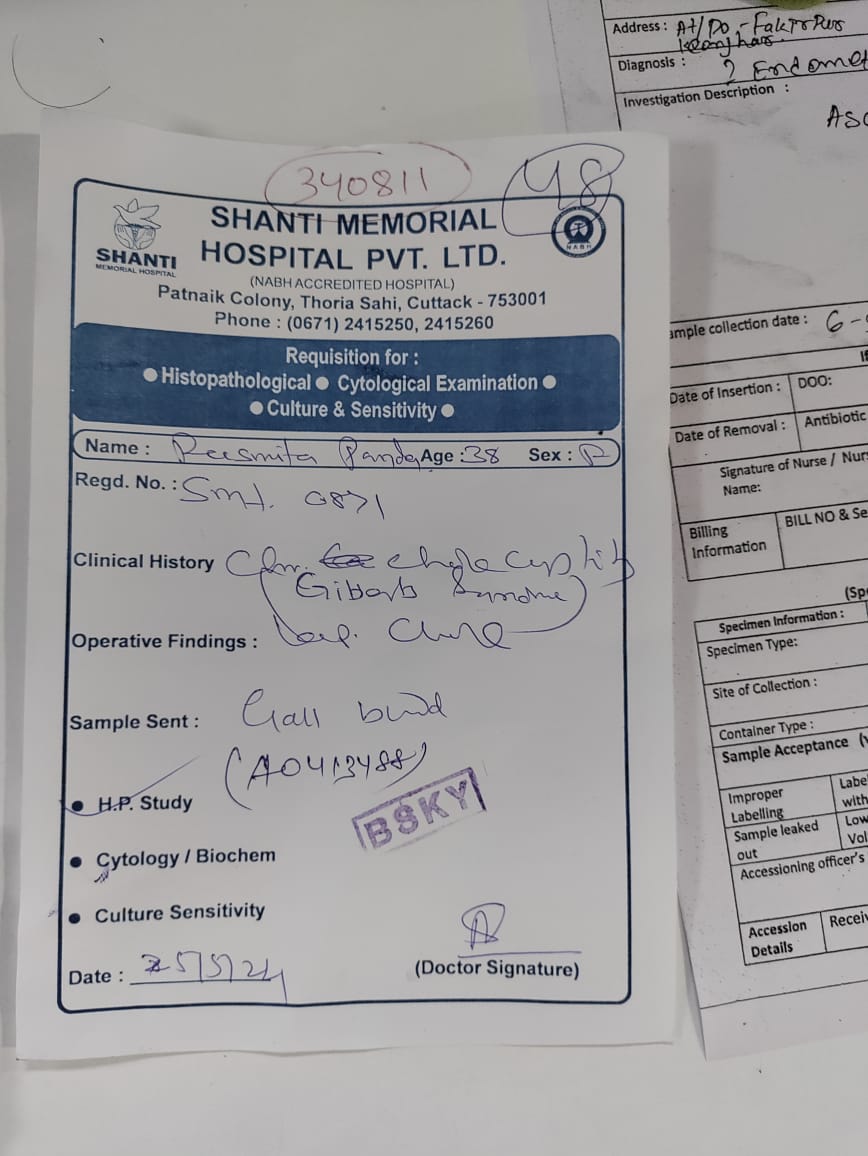 340811
48
SHANTI
MEMORIAL HOSPITAL
SHANTI MEMORIAL
HOSPITAL PVT. LTD.
NABH
(NABH ACCREDITED HOSPITAL)
Patnaik Colony, Thoria Sahi, Cuttack - 753001
Phone : (0671) 2415250, 2415260
Requisition for :
● Histopathological ● Cytological Examination ●
● Culture & Sensitivity ●
Name : Panda Age : 38 Sex : F
Regd. No. : Smt. 0871
Clinical History
Operative Findings : Lap. Chole
Sample Sent : Gall
(A0413488)
● H.P. Study
BSKY
● Cytology / Biochem
● Culture Sensitivity
Date : 25/5/24
(Doctor Signature)
Address : At/Po -
Diagnosis : ? Endomet
Investigation Description :
Asc
ample collection date : 6-
If
Date of Insertion : DOO:
Date of Removal : Antibiotic
Signature of Nurse / Nur
Name:
Billing
Information
BILL NO & Se
(Spe
Specimen Information :
Specimen Type:
Site of Collection :
Container Type :
Sample Acceptance (
Improper
Labelling
Labe
with
Sample leaked
out
Low
Vol
Accessioning officer's
Accession
Details
Recei